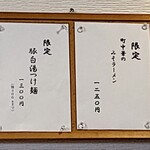 限定
町中華の
みそラーメン
一二五〇円
限定
豚白湯つけ麺
一三〇〇円